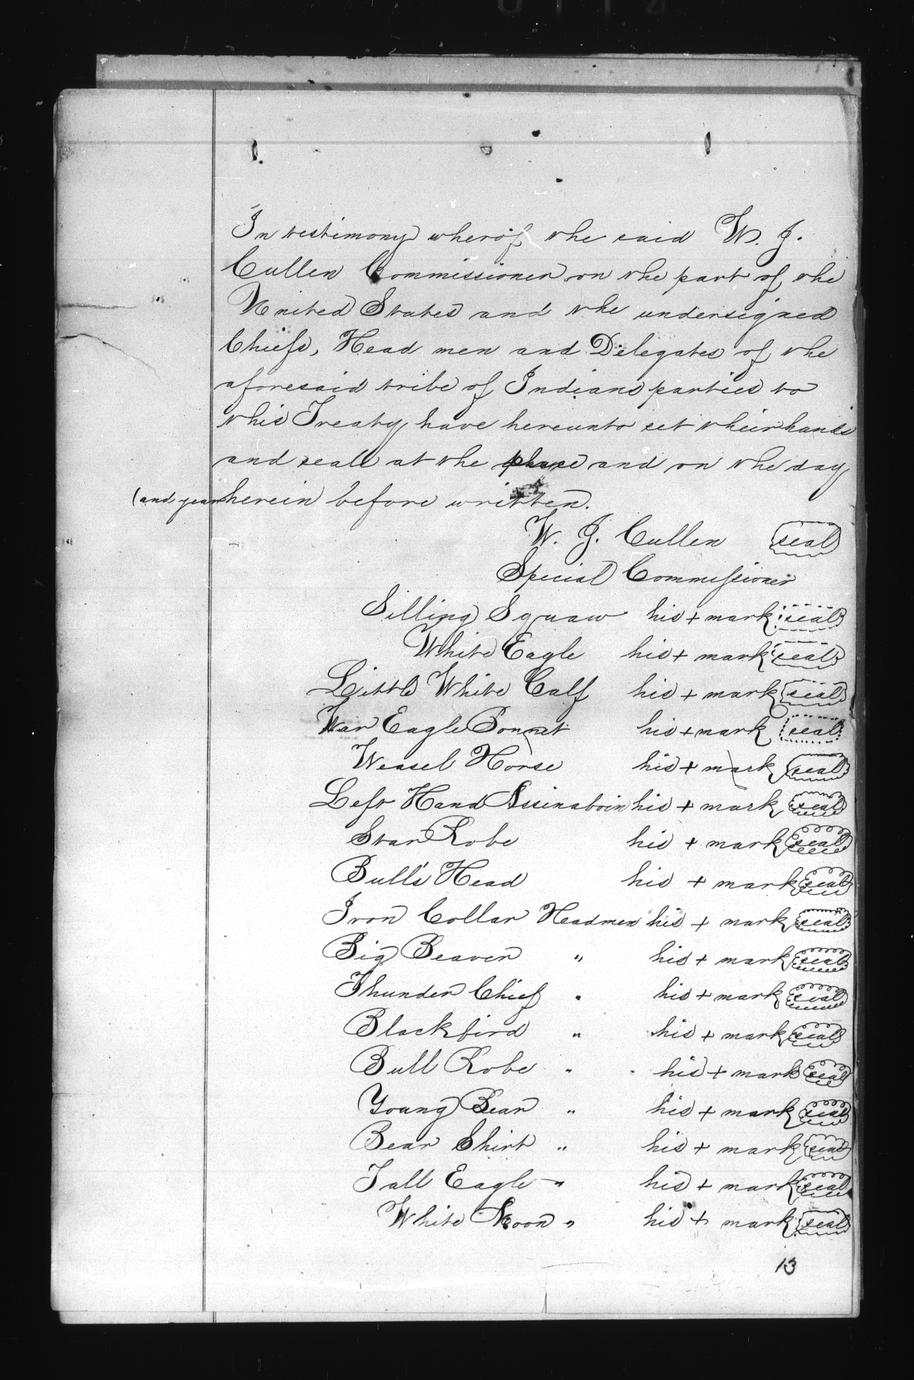 In testimony wherof the said W. J.
Cullen Commissioner on the part of the
United States and the undersigned
Chiefs, Head men and Delegates of the
aforesaid tribe of Indians parties to
this Treaty have hereunto set their hands
and seall at the place and on the day
(and year herein before written.
W. J. Cullen seal
Special Commissioner
Silling Squaw his + mark seal
White Eagle his + mark seal
Little White Calf his + mark seal
War Eagle Bonnet his + mark seal
Weasel Horse his + mark seal
Left Hand Assinaboin his + mark seal
Star Robe his + mark seal
Bull's Head his + mark seal
Iron Collar Headmen his + mark seal
Big Beaver " his + mark seal
Thunder Chief " his + mark seal
Blackbird " his + mark seal
Bull Robe " his + mark seal
Young Bear " his + mark seal
Bear Shirt " his + mark seal
Tall Eagle " his + mark seal
White " his + mark seal
13